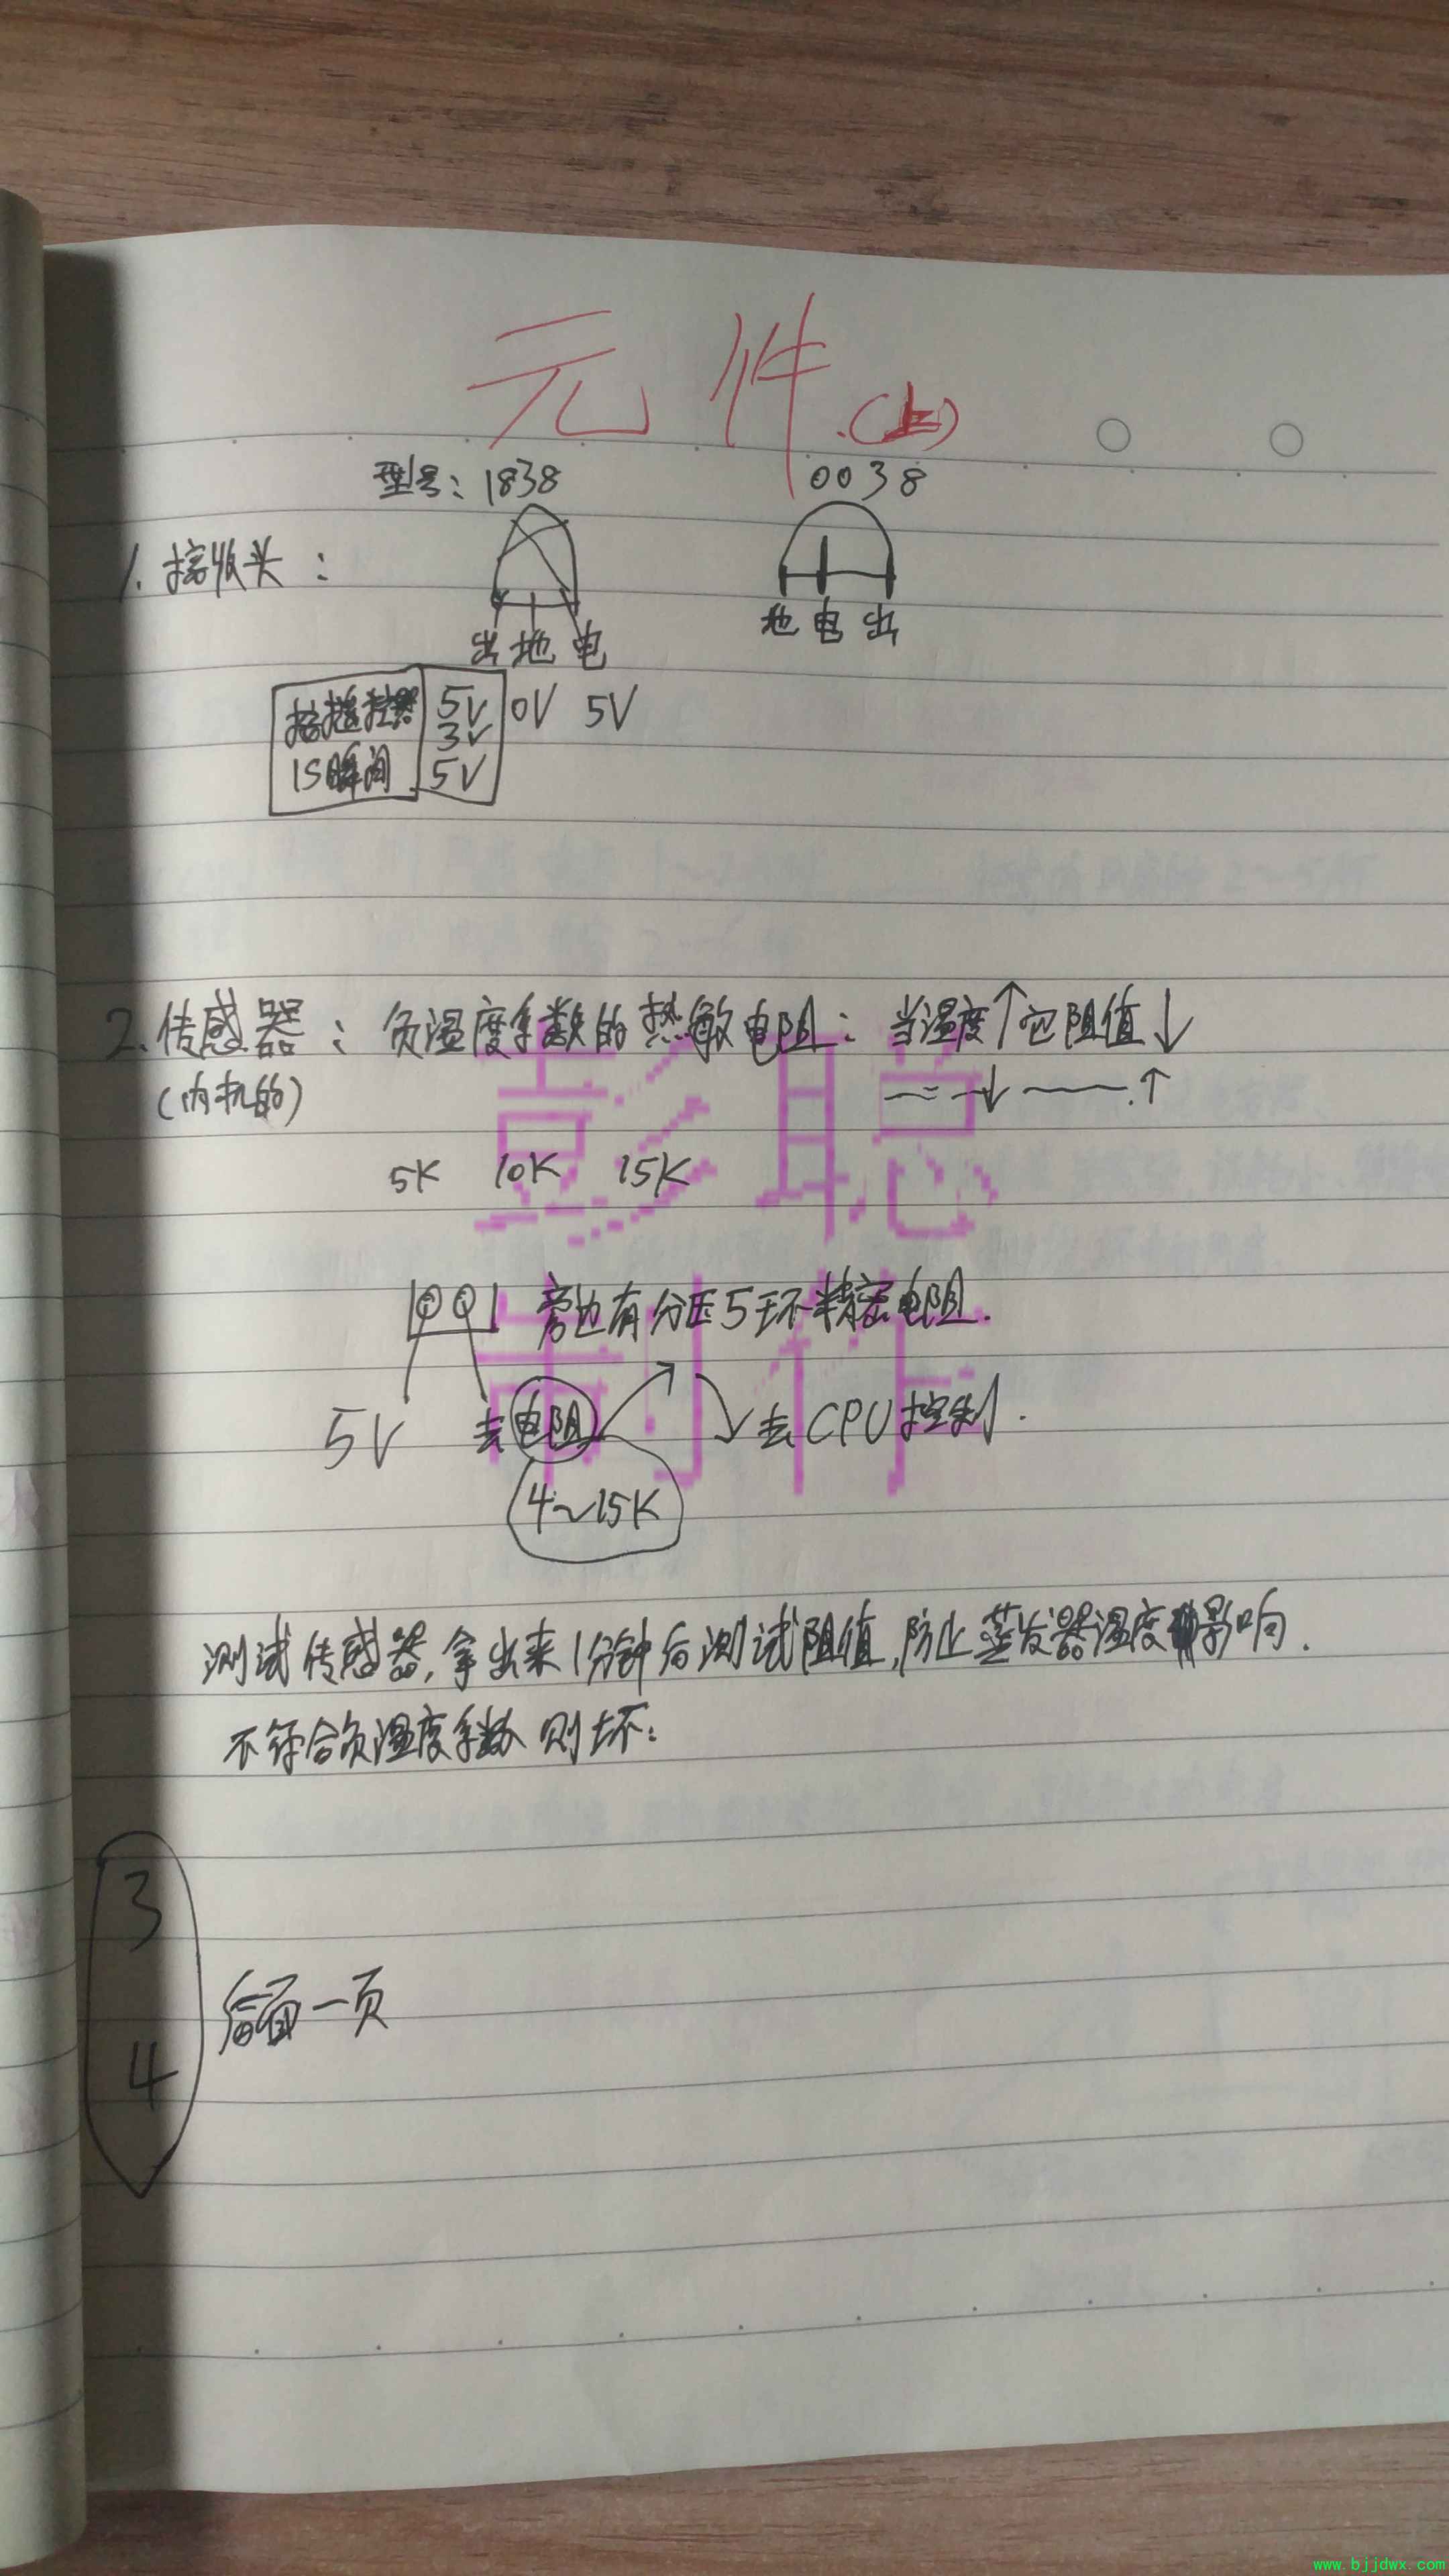 元件.(上)
型号：1838 0038
1. 接收头：
出 地 电 地 电 出
按遥控器 5V 0V 5V
3V
1S瞬间 5V
2. 传感器：负温度系数的热敏电阻：当温度↑它阻值↓
(内机的) 〃 ↓ 〃 ↑
5K 10K 15K
旁边有分压5环精密电阻.
5V 去电阻 去CPU控制.
4~15K
测试传感器,拿出来1分钟后测试阻值,防止蒸发器温度影响.
不符合负温度系数则坏;
3
后面一页
4
彭聪
制作
www.bjjdwx.com